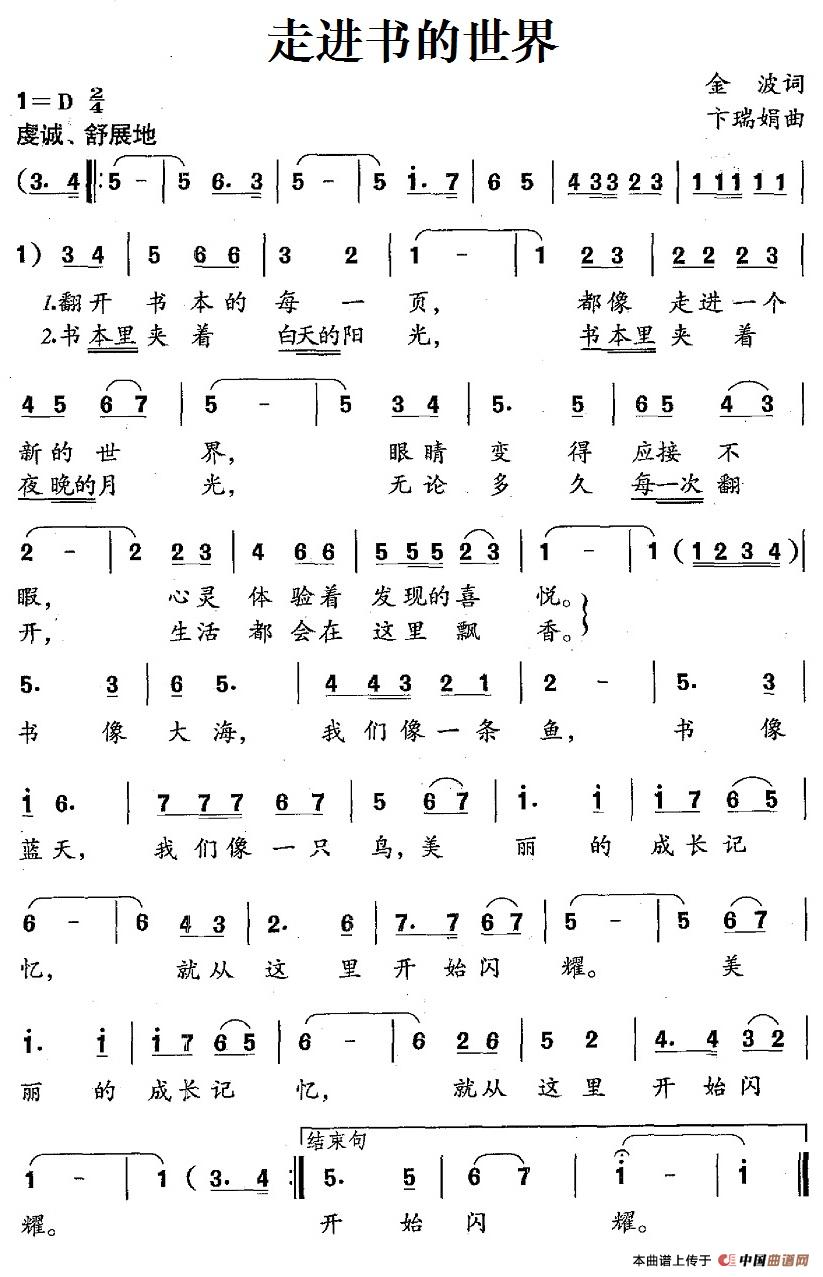 走进书的世界
1=D 2/4
金 波词
虔诚、舒展地
卞瑞娟曲
(3. 4 |: 5 - | 5 6. 3 | 5 - | 5 i. 7 | 6 5 | 4 3 3 2 3 | 1 1 1 1 1 1 |
1) 3 4 | 5 6 6 | 3 2 | 1 - | 1 2 3 | 2 2 2 3 |
1.翻开 书 本的 每 一 页, 都像 走进一个
2.书本里夹 着 白天的阳 光, 书本里夹 着
4 5 6 7 | 5 - | 5 3 4 | 5. 5 | 6 5 4 3 |
新的 世 界, 眼睛 变 得 应接 不
夜晚的月 光, 无论 多 久 每一次 翻
2 - | 2 2 3 | 4 6 6 | 5 5 5 2 3 | 1 - | 1 (1 2 3 4) |
暇, 心灵 体 验着 发现的喜 悦。
开, 生活 都 会在 这里 飘 香。
5. 3 | 6 5. | 4 4 3 2 1 | 2 - | 5. 3 |
书 像 大 海, 我们像一条 鱼, 书 像
i 6. | 7 7 7 6 7 | 5 6 7 | i. i | i 7 6 5 |
蓝天, 我们像一只 鸟,美 丽 的 成长记
6 - | 6 4 3 | 2. 6 | 7. 7 6 7 | 5 - | 5 6 7 |
忆, 就从 这 里 开 始闪 耀。 美
i. i | i 7 6 5 | 6 - | 6 2 6 | 5 2 | 4. 4 3 2 |
丽 的 成长记 忆, 就从 这 里 开 始闪
结束句
1 - | 1 (3. 4 :| 5. 5 | 6 7 | i - | i ‖
耀。 开 始闪 耀。
本曲谱上传于 中国曲谱网